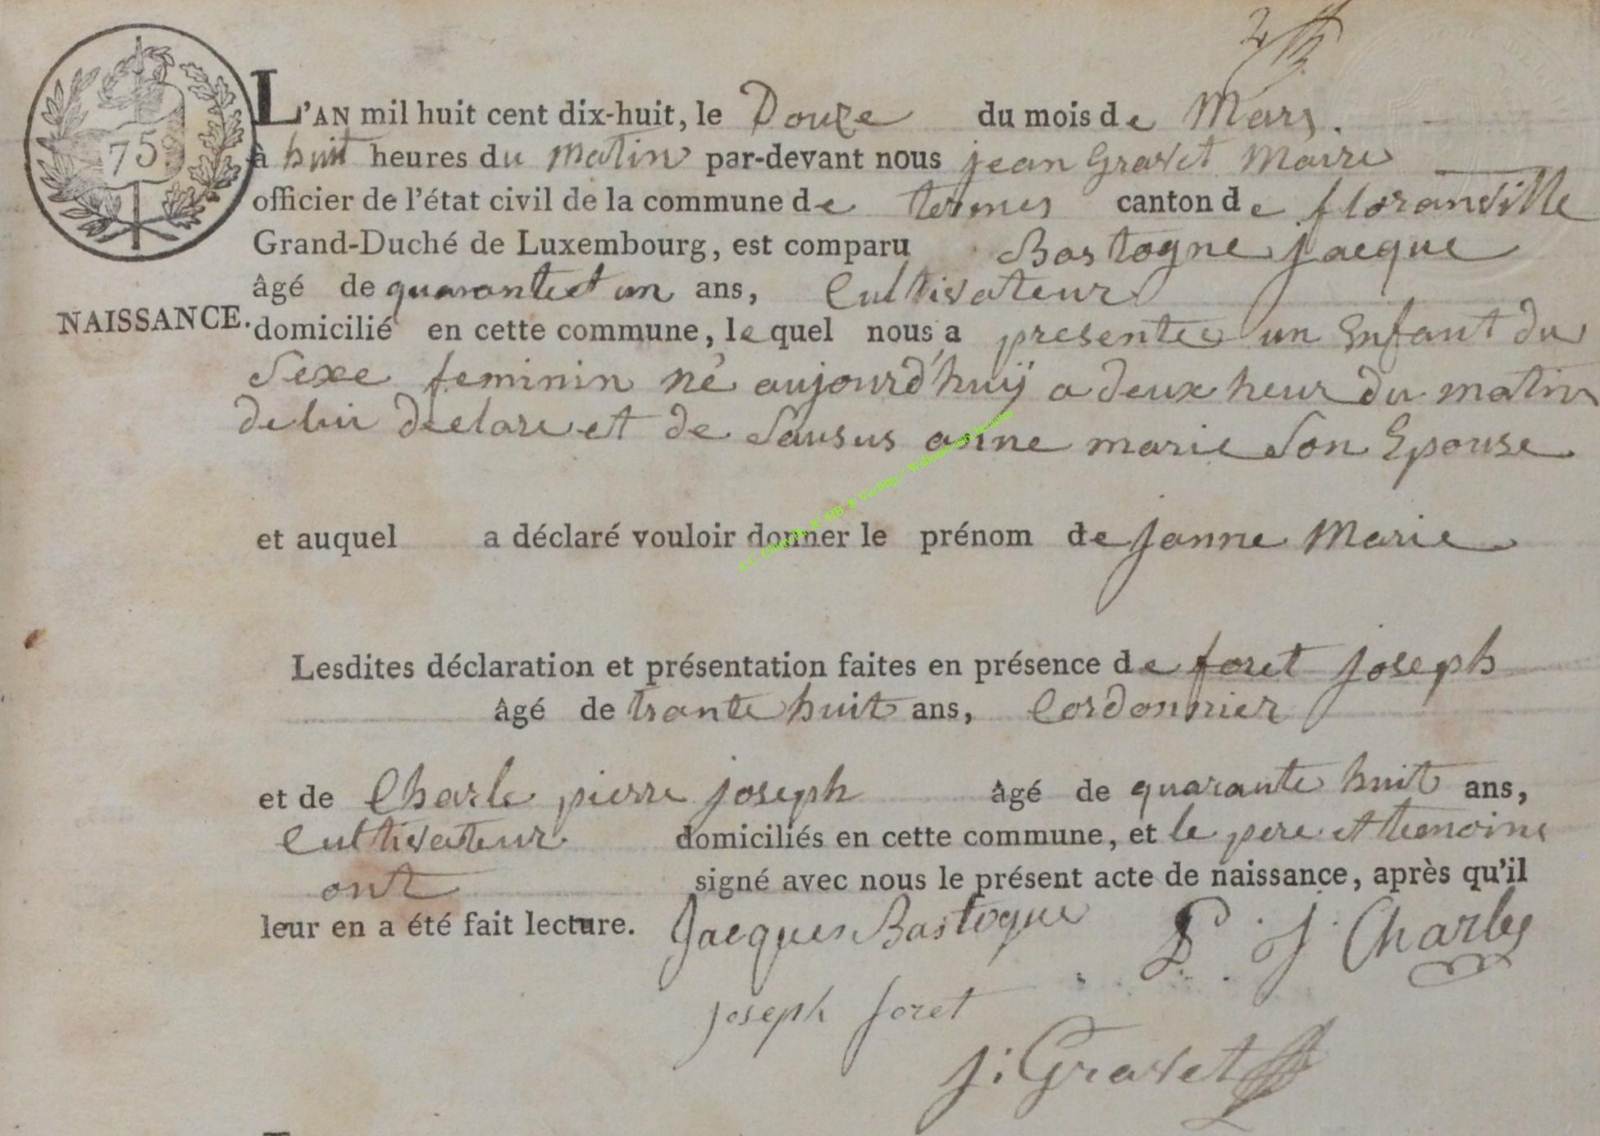 75
L'AN mil huit cent dix-huit, le Douze du mois de Mars.
à huit heures du Matin par-devant nous jean Gravet Maire
officier de l'état civil de la commune de termes canton de floranville
Grand-Duché de Luxembourg, est comparu Bastogne jacque
âgé de quarante et un ans, Cultivateur
NAISSANCE.
domicilié en cette commune, lequel nous a presentee un Enfant du
Sexe feminin né aujourd'huÿ a deux heur du matin
de lui declare et de Sausus anne marie Son Epouse
et auquel a déclaré vouloir donner le prénom de janne Marie
Lesdites déclaration et présentation faites en présence de foret joseph
âgé de trante huit ans, Cordonnier
et de Charle pierre joseph âgé de quarante huit ans,
Cultivateur domiciliés en cette commune, et le pere et temoins
ont signé avec nous le présent acte de naissance, après qu'il
leur en a été fait lecture. Jacques Bastogne P. J. Charles
joseph foret
j: Gravet